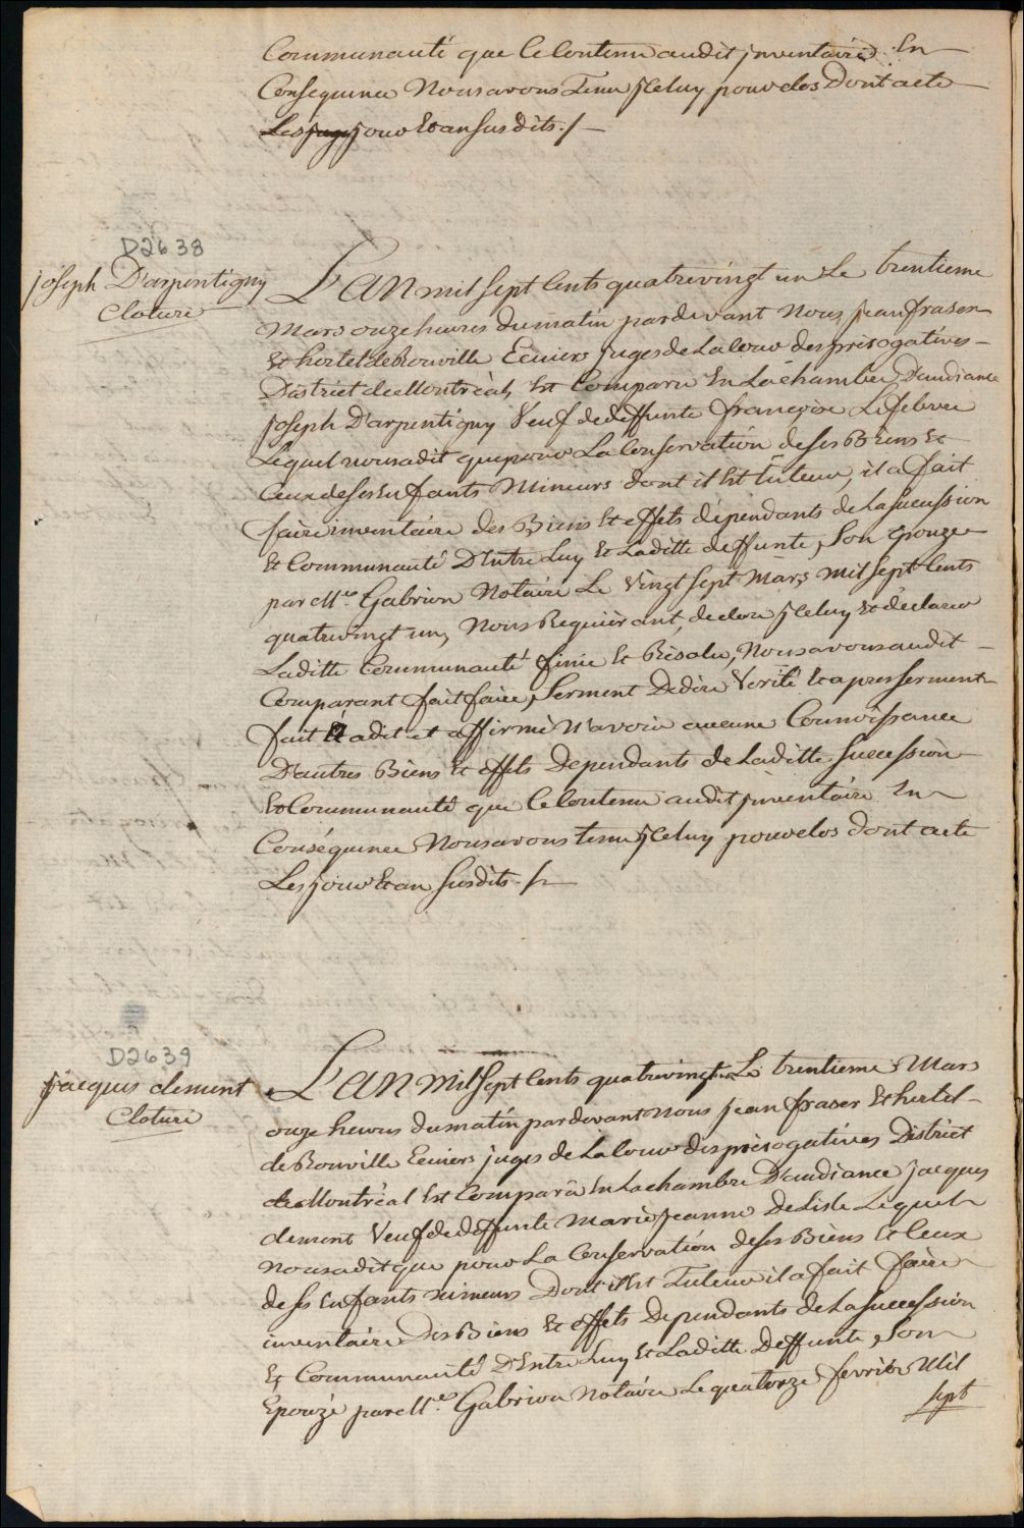 Communauté que le Contenu audit jnventairé. En
Consequence Nous avons Tenu jCeluy pour clos Dont acte
Les jour Et an Susdits ./.
D2638
joseph D'arpentigny
Cloture
L'AN mil Sept Cents quatrevingt un Le trentieme
Mars onze heures du matin pardevant Nous jean fraser
Et hertel de Rouville Ecuiers juges de La Cour des prerogatives
District de Montréal, Est Comparu En La Chambre D'audiance
joseph D'arpentigny Veuf de deffunte françoise Lefebvre
Lequel nous a dit que pour La Conservation de Ses Biens Et
Ceux de Ses Enfants Mineurs dont il Est tuteur, il a fait
faire inventaire des Biens Et effets dépendants de La Sucession
Et Communauté D'Entre Luy Et Laditte deffunte, Son Epouze
par Mre Gabrion Notaire Le Vingt Sept Mars mil Sept Cents
quatrevingt un, Nous Requiérant, de clore jCeluy Et declarer
Laditte Communauté finie Et Résolue, Nous avons audit
Comparant fait faire, Serment De dire Verité Et apres Serment
fait Il a dit et affirmé N'avoir aucune Connoissance
D'autres Biens Et effets Dependants de Laditte Succession
Et Communauté que le Contenu audit jnventaire En
Conséquence Nous avons tenu jCeluy pour clos dont acte
Les jour Et an Susdits ./.
D2639
jacques clement
Cloture
L'AN Mil Sept Cents quatrevingt un Le trentieme Mars
onze heures du matin pardevant nous jean fraser Et hertel
de Rouville Ecuiers juges de La Cour des prérogatives District
de Montréal Est Comparu En La chambre D'audiance jacques
clement Veuf de deffunte Marie jeanne DeLisle Lequel
nous a dit que pour La Conservation de Ses Biens Et Ceux
de Ses Enfants mineurs Dont il Est Tuteur il a fait faire
inventaire Des Biens Et effets Dependants de La Succession
Et Communauté D'Entre Luy Et Laditte Deffunte, Son
Epouze par Mre Gabrion Notaire Le quatorze fevrier Mil
Sept